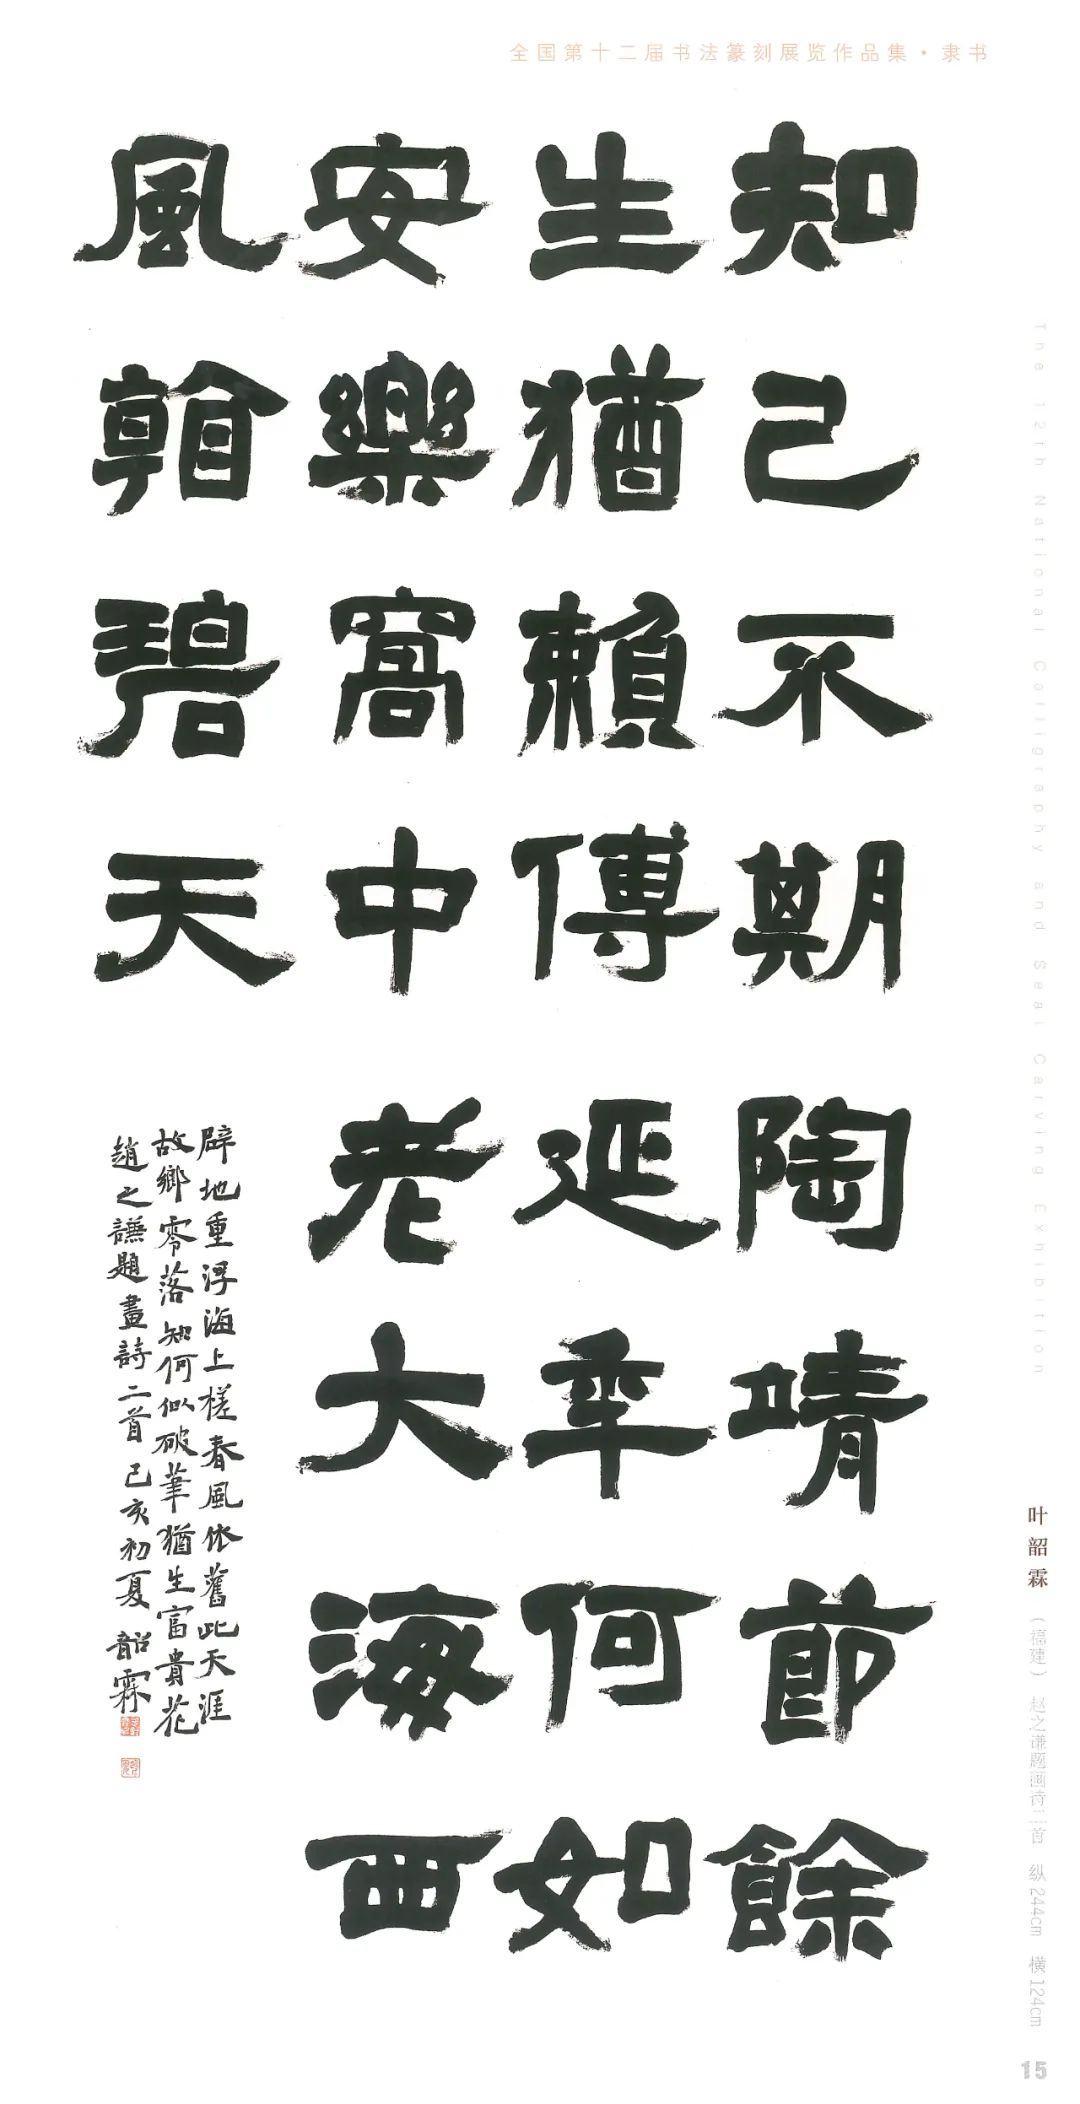 全国第十二届书法篆刻展览作品集·隶书
知己不期陶靖節餘
生猶賴傅延年何如
安樂窩中老大海西
風翰碧天
辟地重浮海上槎春風依舊此天涯
故鄉零落知何似破筆猶生富貴花
趙之謙題畫詩二首己亥初夏韶霖
The 12th National Calligraphy and Seal Carving Exhibition
叶韶霖（福建）赵之谦题画诗二首 纵244cm 横124cm
15